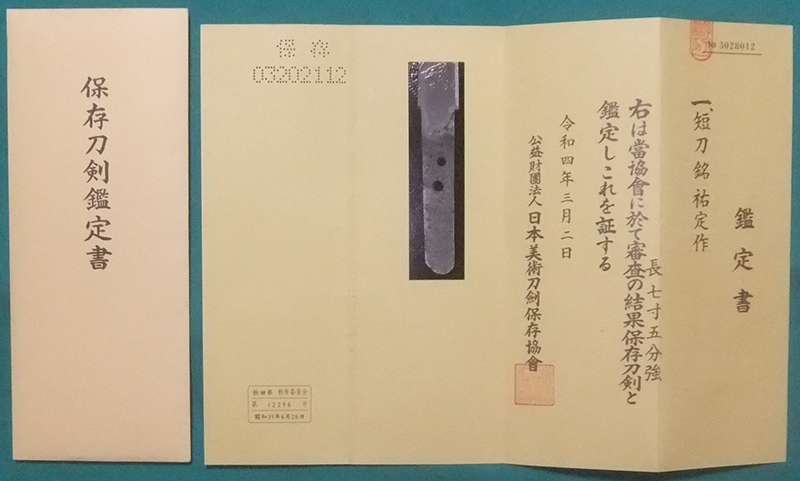 保存刀剣鑑定書
№ 3028012
鑑定書
一、短刀銘 祐定作
長七寸五分強
右は當協會に於て審査の結果保存刀剣と
鑑定しこれを証する
令和四年三月二日
公益財團法人日本美術刀剣保存協會
保存
03202112
秋田県 教育委員会
第 12296 号